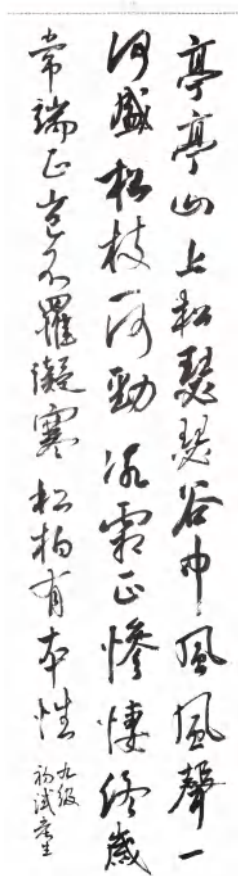 亭亭山上松瑟瑟谷中風風聲一
何盛松枝一何勁冰霜正慘悽終歲
常端正豈不罹凝寒松柏有本性
九級
初試考生